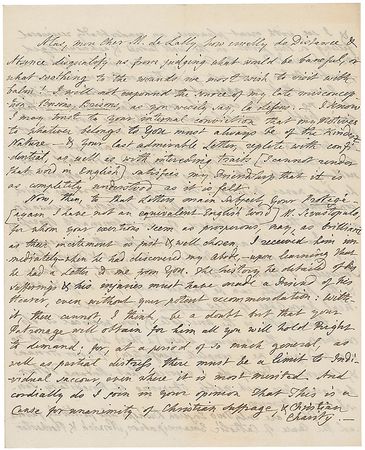 Alas, mon cher M. de Lally, how cruelly do Distance &
Absence disqualify us from judging what would be baneful, or
what soothing to the wounds we most wish to visit with
balm! I will not expound the source of my late misconcep-
tion. Passons, Passons, as you wisely say, la dessus. I know
I may trust to your internal conviction that my Motives
to whatever belongs to You must always be of the kindest
Nature — & Your last admirable Letter, replete with confi-
dential, as well as with interesting traits [I cannot render
that word in English] satisfies my Friendship that it is
as completely understood as it is felt.
Now, then, to that Letters main subject, Your Protegé
[again I have not an equivalent English word] M.
for whom your exertions seem as prosperous, nay, as brilliant
as their excitement is just & well chosen. I received him im-
mediately when he had discovered my abode, upon learning that
he had a Letter to me from You. The history he detailed of his
sufferings & his injuries must have made a Friend of his
Hearer, even without your potent recommendation: with
it, there cannot, I think be a doubt but that your
Patronage will obtain for him all you will hold Right
to demand; for, at a period of so much general, as
well as partial distress, there must be a limit to Indi-
vidual succour, even where it is most merited. And
cordially do I join in your opinion That This is a
Cause for unanimity of Christian suffrage, & Christian
Charity. —